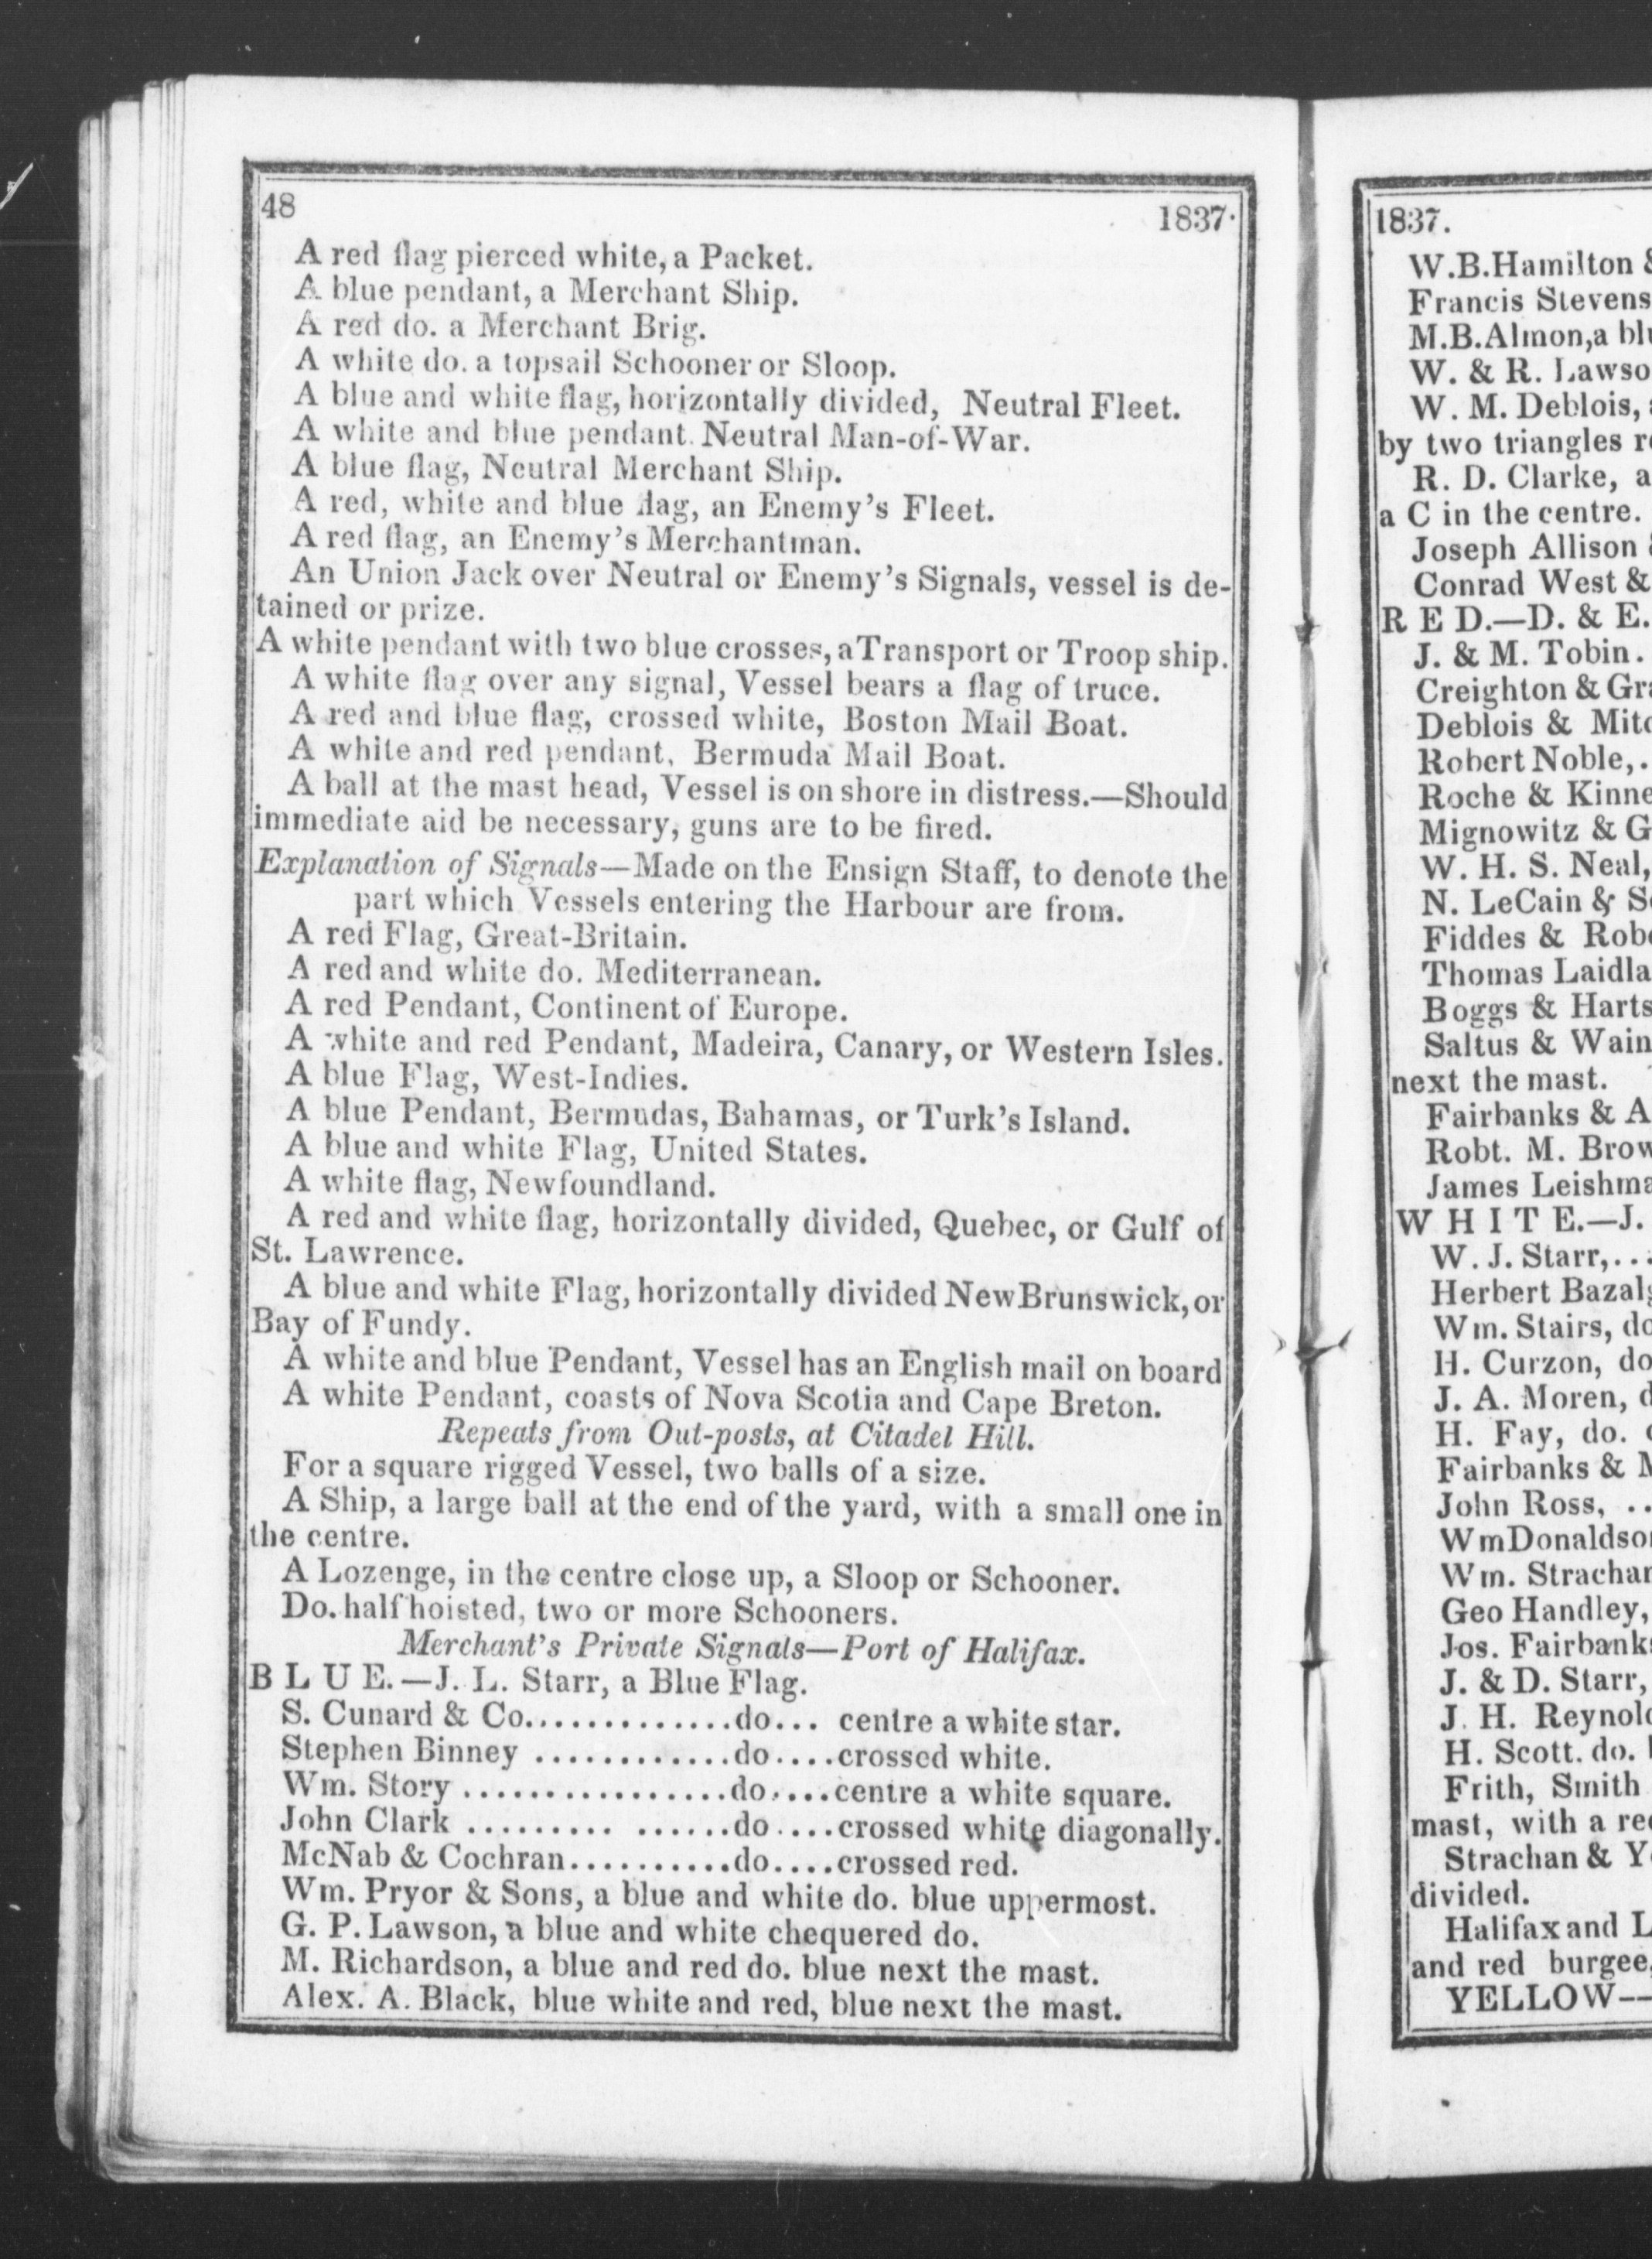 48 1837.
A red flag pierced white, a Packet.
A blue pendant, a Merchant Ship.
A red do. a Merchant Brig.
A white do. a topsail Schooner or Sloop.
A blue and white flag, horizontally divided, Neutral Fleet.
A white and blue pendant. Neutral Man-of-War.
A blue flag, Neutral Merchant Ship.
A red, white and blue flag, an Enemy's Fleet.
A red flag, an Enemy's Merchantman.
An Union Jack over Neutral or Enemy's Signals, vessel is de-
tained or prize.
A white pendant with two blue crosses, a Transport or Troop ship.
A white flag over any signal, Vessel bears a flag of truce.
A red and blue flag, crossed white, Boston Mail Boat.
A white and red pendant, Bermuda Mail Boat.
A ball at the mast head, Vessel is on shore in distress.—Should
immediate aid be necessary, guns are to be fired.
Explanation of Signals—Made on the Ensign Staff, to denote the
part which Vessels entering the Harbour are from.
A red Flag, Great-Britain.
A red and white do. Mediterranean.
A red Pendant, Continent of Europe.
A white and red Pendant, Madeira, Canary, or Western Isles.
A blue Flag, West-Indies.
A blue Pendant, Bermudas, Bahamas, or Turk's Island.
A blue and white Flag, United States.
A white flag, Newfoundland.
A red and white flag, horizontally divided, Quebec, or Gulf of
St. Lawrence.
A blue and white Flag, horizontally divided New Brunswick, or
Bay of Fundy.
A white and blue Pendant, Vessel has an English mail on board
A white Pendant, coasts of Nova Scotia and Cape Breton.
Repeats from Out-posts, at Citadel Hill.
For a square rigged Vessel, two balls of a size.
A Ship, a large ball at the end of the yard, with a small one in
the centre.
A Lozenge, in the centre close up, a Sloop or Schooner.
Do. half hoisted, two or more Schooners.
Merchant's Private Signals—Port of Halifax.
B L U E.—J. L. Starr, a Blue Flag.
S. Cunard & Co..............do... centre a white star.
Stephen Binney ............do....crossed white.
Wm. Story ................do....centre a white square.
John Clark ......... ......do....crossed white diagonally.
McNab & Cochran..........do....crossed red.
Wm. Pryor & Sons, a blue and white do. blue uppermost.
G. P. Lawson, a blue and white chequered do.
M. Richardson, a blue and red do. blue next the mast.
Alex. A. Black, blue white and red, blue next the mast.
1837.
W.B.Hamilton
Francis Stevens
M.B.Almon, a
W. & R. Lawso
W. M. Deblois,
by two triangles
R. D. Clarke, a
a C in the centre.
Joseph Allison
Conrad West &
R E D.—D. & E.
J. & M. Tobin.
Creighton &
Deblois &
Robert Noble,.
Roche & Kinne
Mignowitz & G
W. H. S. Neal,
N. LeCain &
Fiddes &
Thomas Laidla
Boggs & Harts
Saltus & Wain
next the mast.
Fairbanks & A
Robt. M. Brow
James Leishma
W H I T E.—J.
W. J. Starr,...
Herbert
Wm. Stairs, do
H. Curzon, do
J. A. Moren,
H. Fay, do.
Fairbanks &
John Ross, ..
Wm Donaldson
Wm. Strachan
Geo Handley,
Jos. Fairbanks
J. & D. Starr,
J. H. Reynold
H. Scott. do.
Frith, Smith
mast, with a red
Strachan & Y
divided.
Halifax and L
and red burgee,
YELLOW--